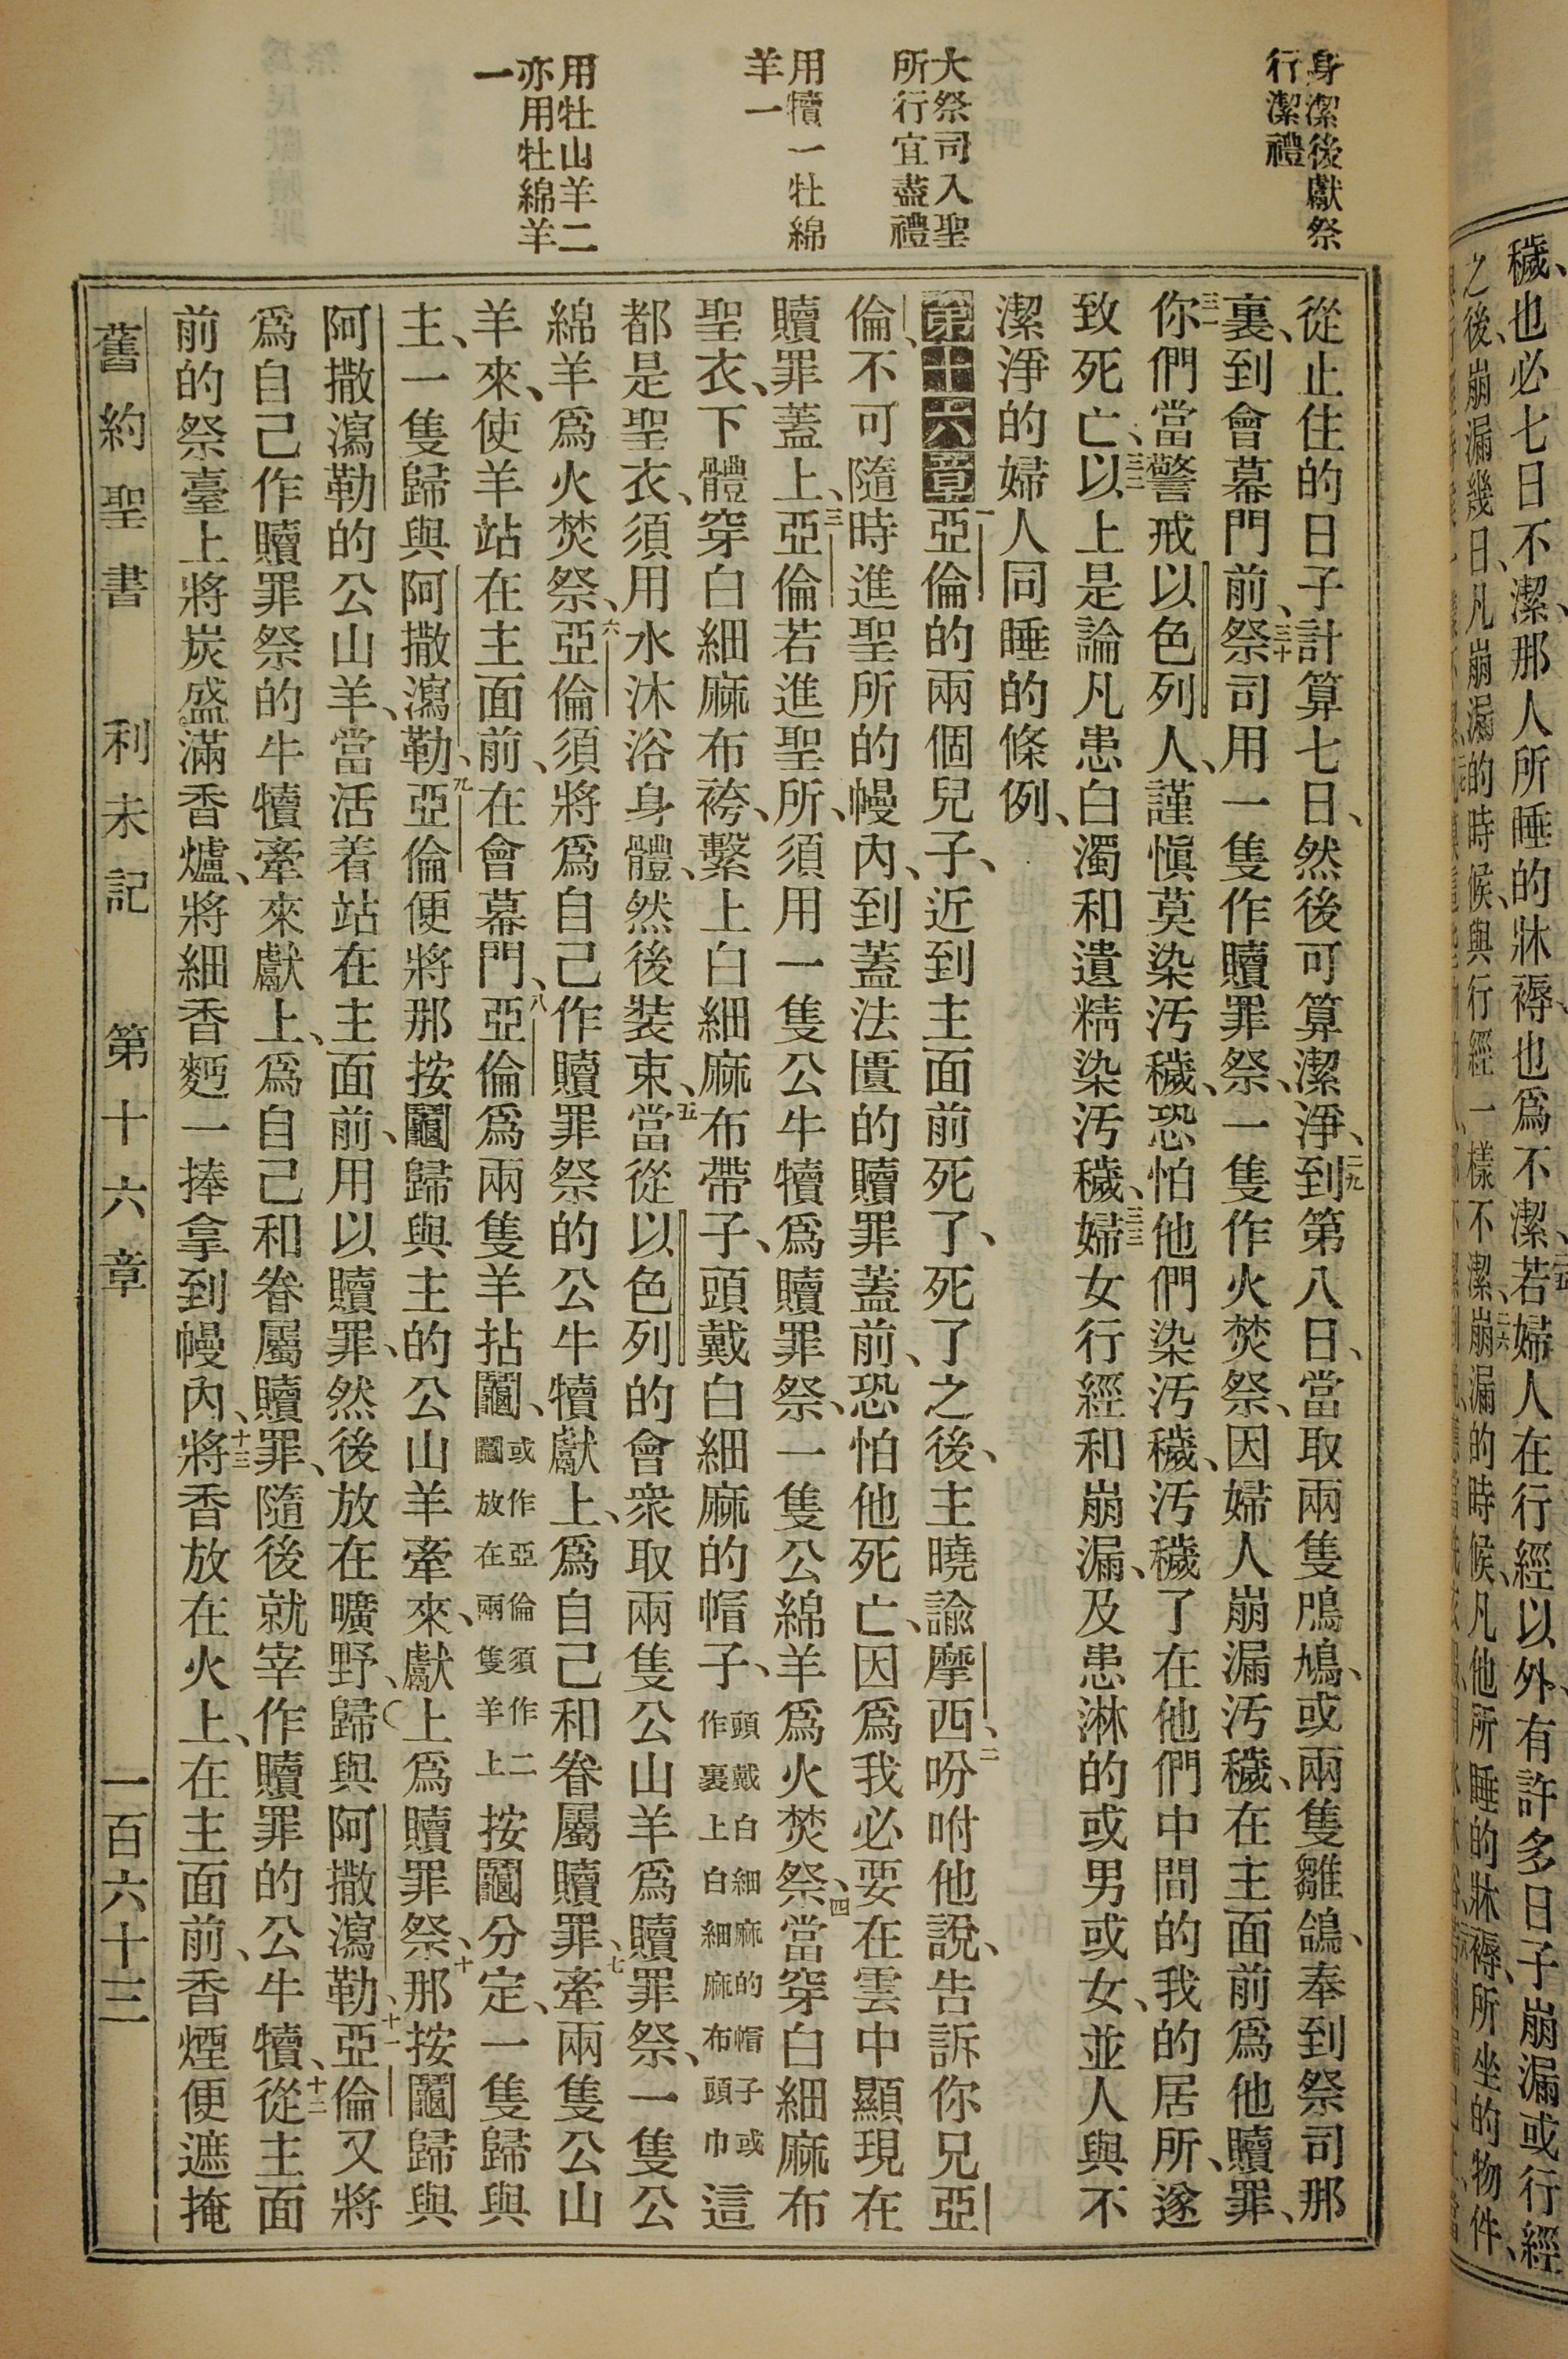 身潔後獻祭
行潔禮
大祭司入聖
所行宜盡禮
用犢一牡綿
羊一
用牡山羊二
亦用牡綿羊
一
從止住的日子計算七日、然後可算潔淨、二九到第八日、當取兩隻鳲鳩、或兩隻雛鴿、奉到祭司那
裏、到會幕門前、三十祭司用一隻作贖罪祭、一隻作火焚祭、因婦人崩漏汚穢、在主面前爲他贖罪、
三一你們當警戒以色列人、謹愼莫染汚穢、恐怕他們染汚穢、汚穢了在他們中間的我的居所、遂
致死亡、三二以上是論凡患白濁和遺精染汚穢、三三婦女行經和崩漏、及患淋的或男或女、並人與不
潔淨的婦人同睡的條例、
第十六章 一亞倫的兩個兒子、近到主面前死了、死了之後、主曉諭摩西、二吩咐他說、告訴你兄亞
倫、不可隨時進聖所的幔內、到蓋法匱的贖罪蓋前、恐怕他死亡、因爲我必要在雲中顯現在
贖罪蓋上、三亞倫若進聖所、須用一隻公牛犢爲贖罪祭、一隻公綿羊爲火焚祭、四當穿白細麻布
聖衣、下體穿白細麻布袴、繫上白細麻布帶子、頭戴白細麻的帽子、頭戴白細麻的帽子或作裹上白細麻布頭巾這
都是聖衣、須用水沐浴身體、然後裝束、五當從以色列的會衆取兩隻公山羊爲贖罪祭、一隻公
綿羊爲火焚祭、六亞倫須將爲自己作贖罪祭的公牛犢獻上、爲自己和眷屬贖罪、七牽兩隻公山
羊來、使羊站在主面前、在會幕門、八亞倫爲兩隻羊拈鬮、或作亞倫須作二鬮放在兩隻羊上按鬮分定、一隻歸與
主、一隻歸與阿撒瀉勒、九亞倫便將那按鬮歸與主的公山羊牽來、獻上爲贖罪祭、十那按鬮歸與
阿撒瀉勒的公山羊、當活着站在主面前、用以贖罪、然後放在曠野、歸與阿撒瀉勒、十一亞倫又將
爲自己作贖罪祭的牛犢牽來獻上、爲自己和眷屬贖罪、隨後就宰作贖罪的公牛犢、十二從主面
前的祭臺上將炭盛滿香爐、將細香麪一捧拿到幔內、十三將香放在火上、在主面前、香煙便遮掩
舊約聖書 利未記 第十六章 一百六十三